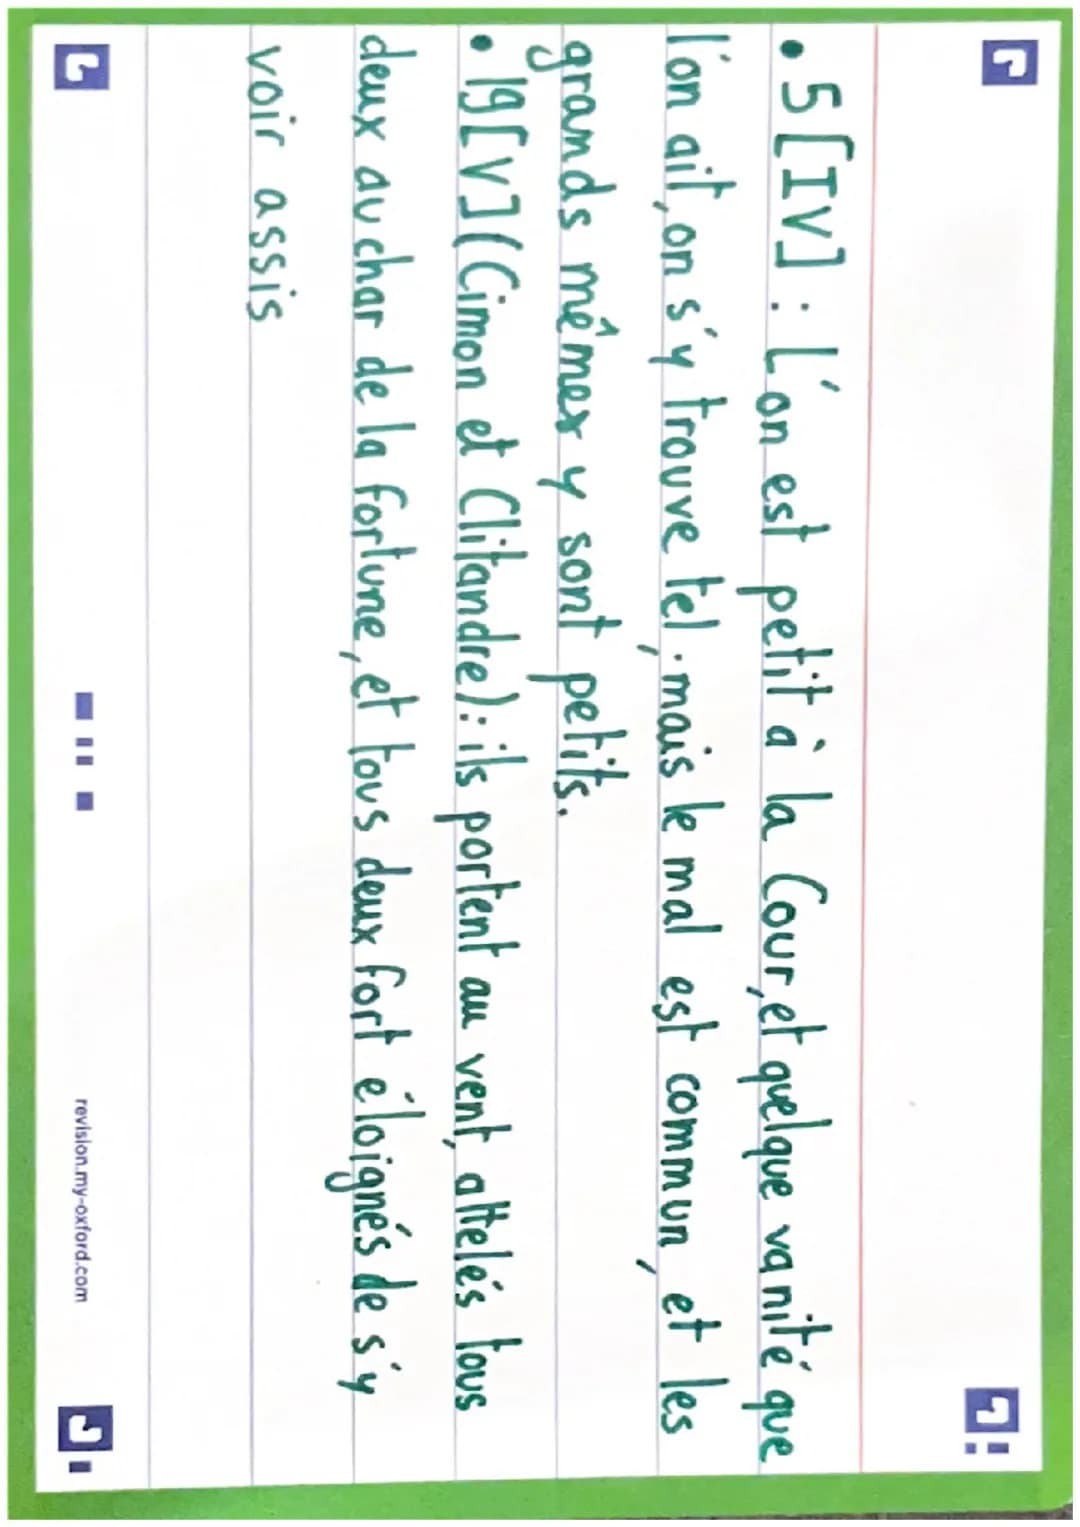 • 5 [IV] : L'on est petit à la Cour, et quelque vanité que
l'on ait, on s'y trouve tel ; mais le mal est commun, et les
grands mêmes y sont petits.
• 19 [V] (Cimon et Clitandre) : ils portent au vent, attelés tous
deux au char de la fortune, et tous deux fort éloignés de s'y
voir assis
revision.my-oxford.com